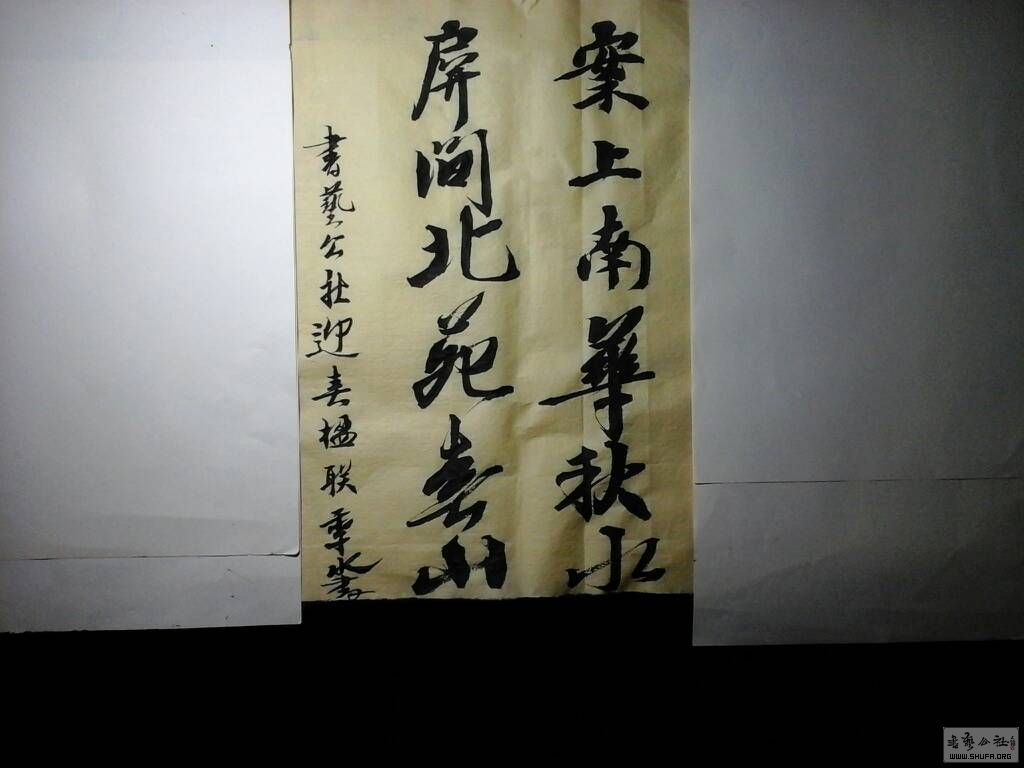 案上南華秋水
屏间北苑春山
書藝公社迎春楹联季水書
书藝公社
WWW.SHUFA.ORG